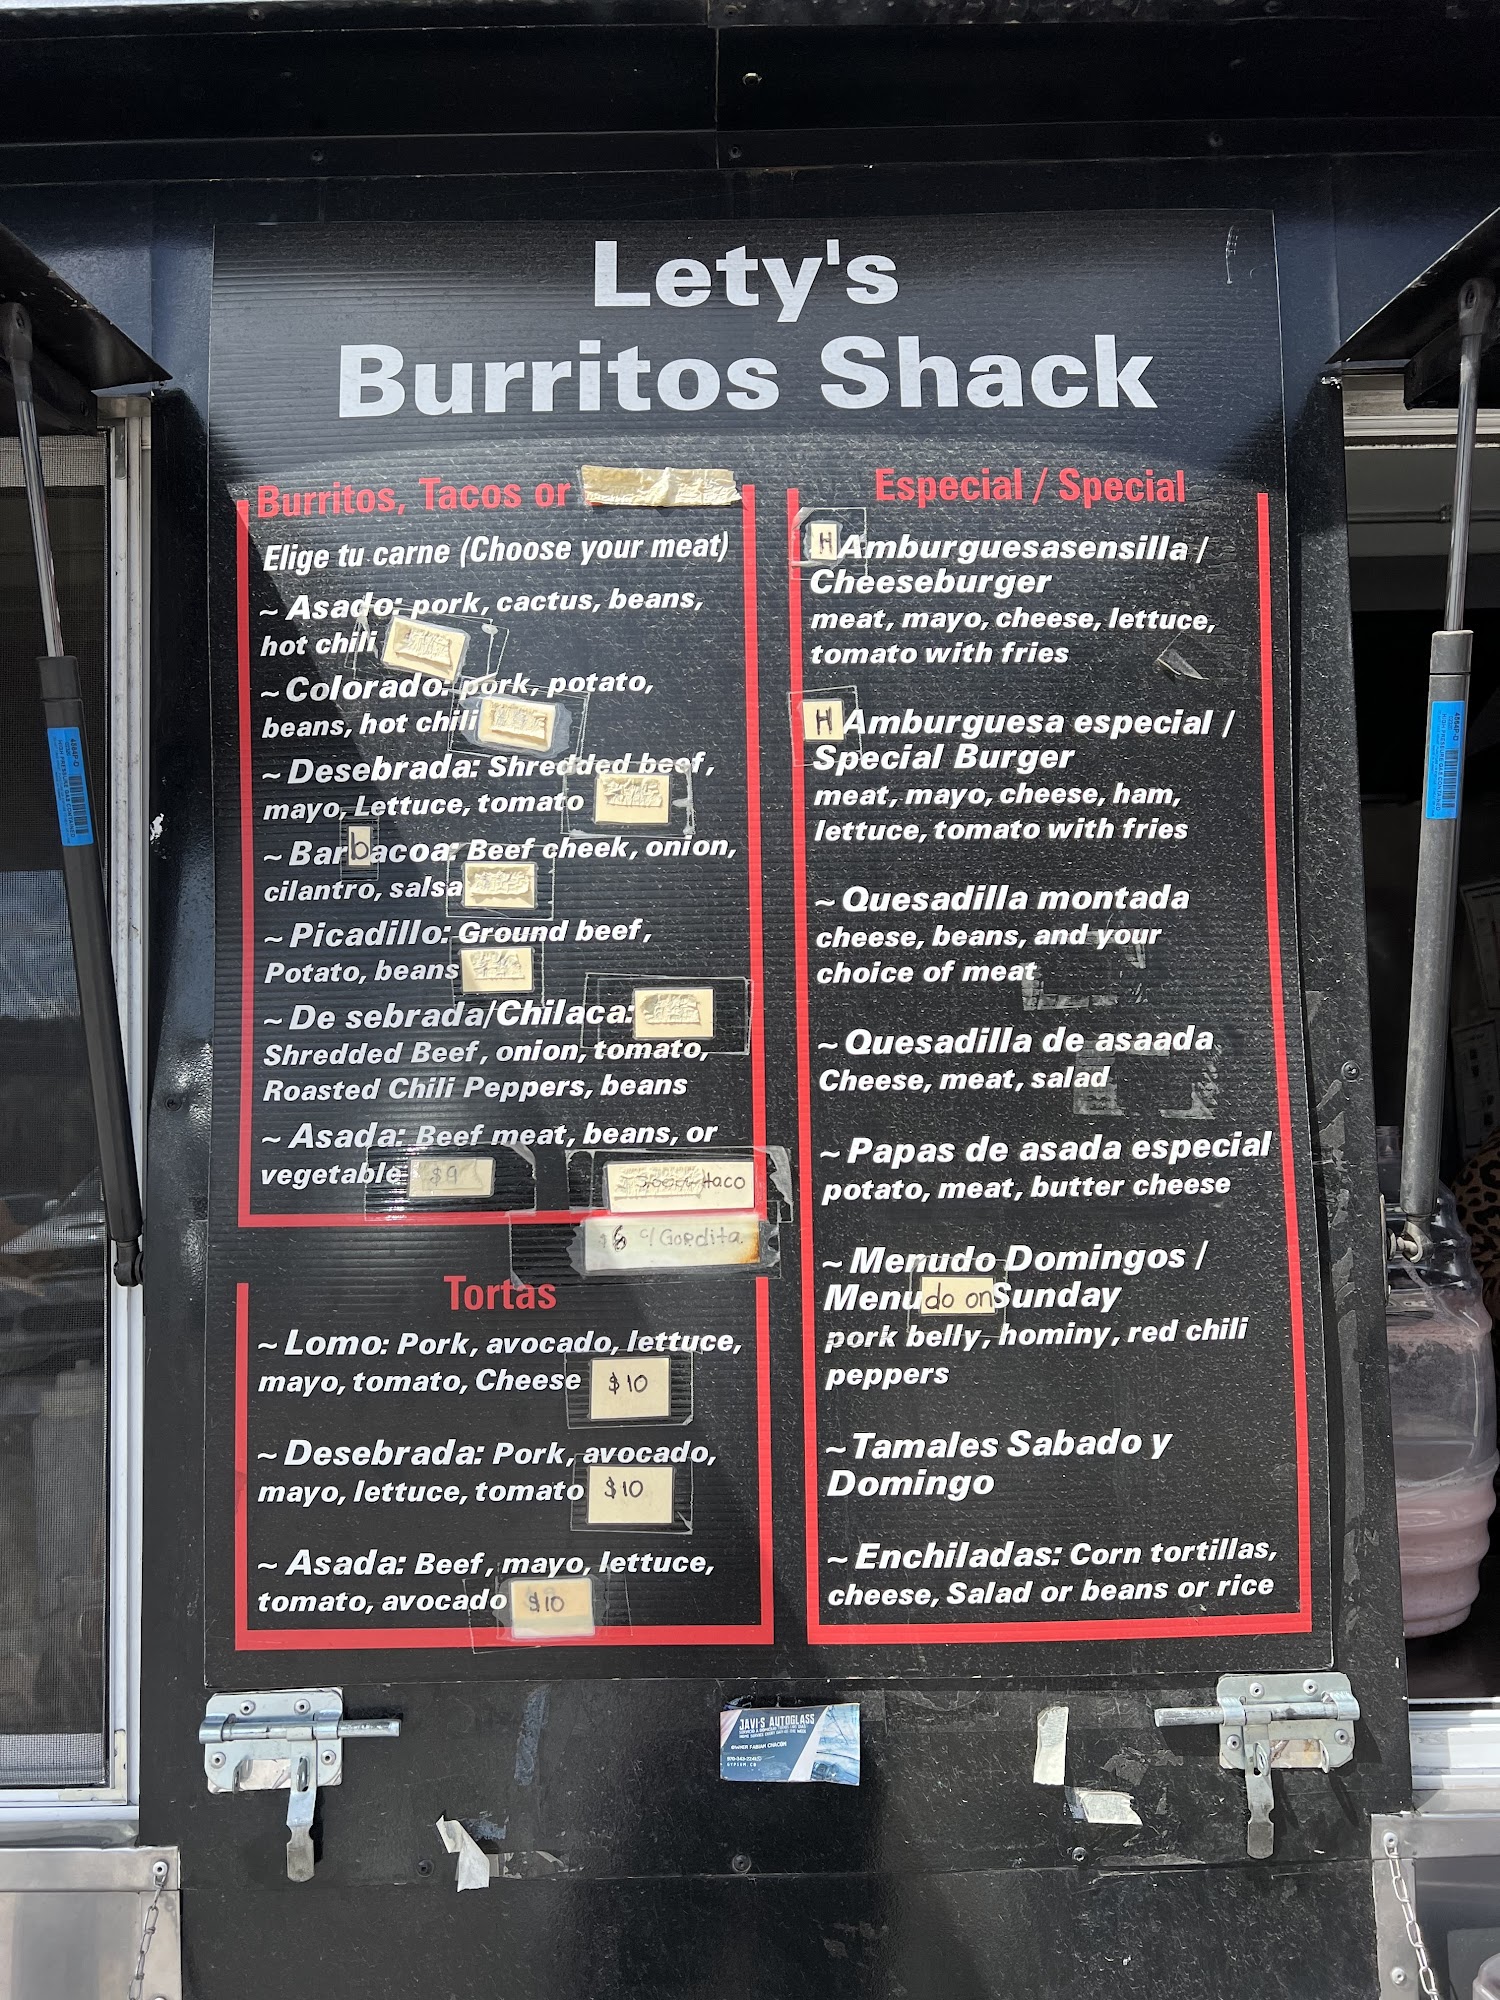 Lety's
Burritos Shack
Burritos, Tacos or
Elige tu carne (Choose your meat)
~ Asado: pork, cactus, beans,
hot chili
~ Colorado: pork, potato,
beans, hot chili
~ Desebrada: Shredded beef,
mayo, Lettuce, tomato
~ Barbacoa: Beef cheek, onion,
cilantro, salsa
~ Picadillo: Ground beef,
Potato, beans
~ De sebrada/Chilaca:
Shredded Beef, onion, tomato,
Roasted Chili Peppers, beans
~ Asada: Beef meat, beans, or
vegetable $9
taco
$6 c/ Gordita
Tortas
~ Lomo: Pork, avocado, lettuce,
mayo, tomato, Cheese $10
~ Desebrada: Pork, avocado,
mayo, lettuce, tomato $10
~ Asada: Beef, mayo, lettuce,
tomato, avocado $10
Especial / Special
HAmburguesasensilla /
Cheeseburger
meat, mayo, cheese, lettuce,
tomato with fries
HAmburguesa especial /
Special Burger
meat, mayo, cheese, ham,
lettuce, tomato with fries
~ Quesadilla montada
cheese, beans, and your
choice of meat
~ Quesadilla de asaada
Cheese, meat, salad
~ Papas de asada especial
potato, meat, butter cheese
~ Menudo Domingos /
Menudo on Sunday
pork belly, hominy, red chili
peppers
~Tamales Sabado y
Domingo
~ Enchiladas: Corn tortillas,
cheese, Salad or beans or rice
JAVI'S AUTOGLASS
OWNER FABIAN CHACON